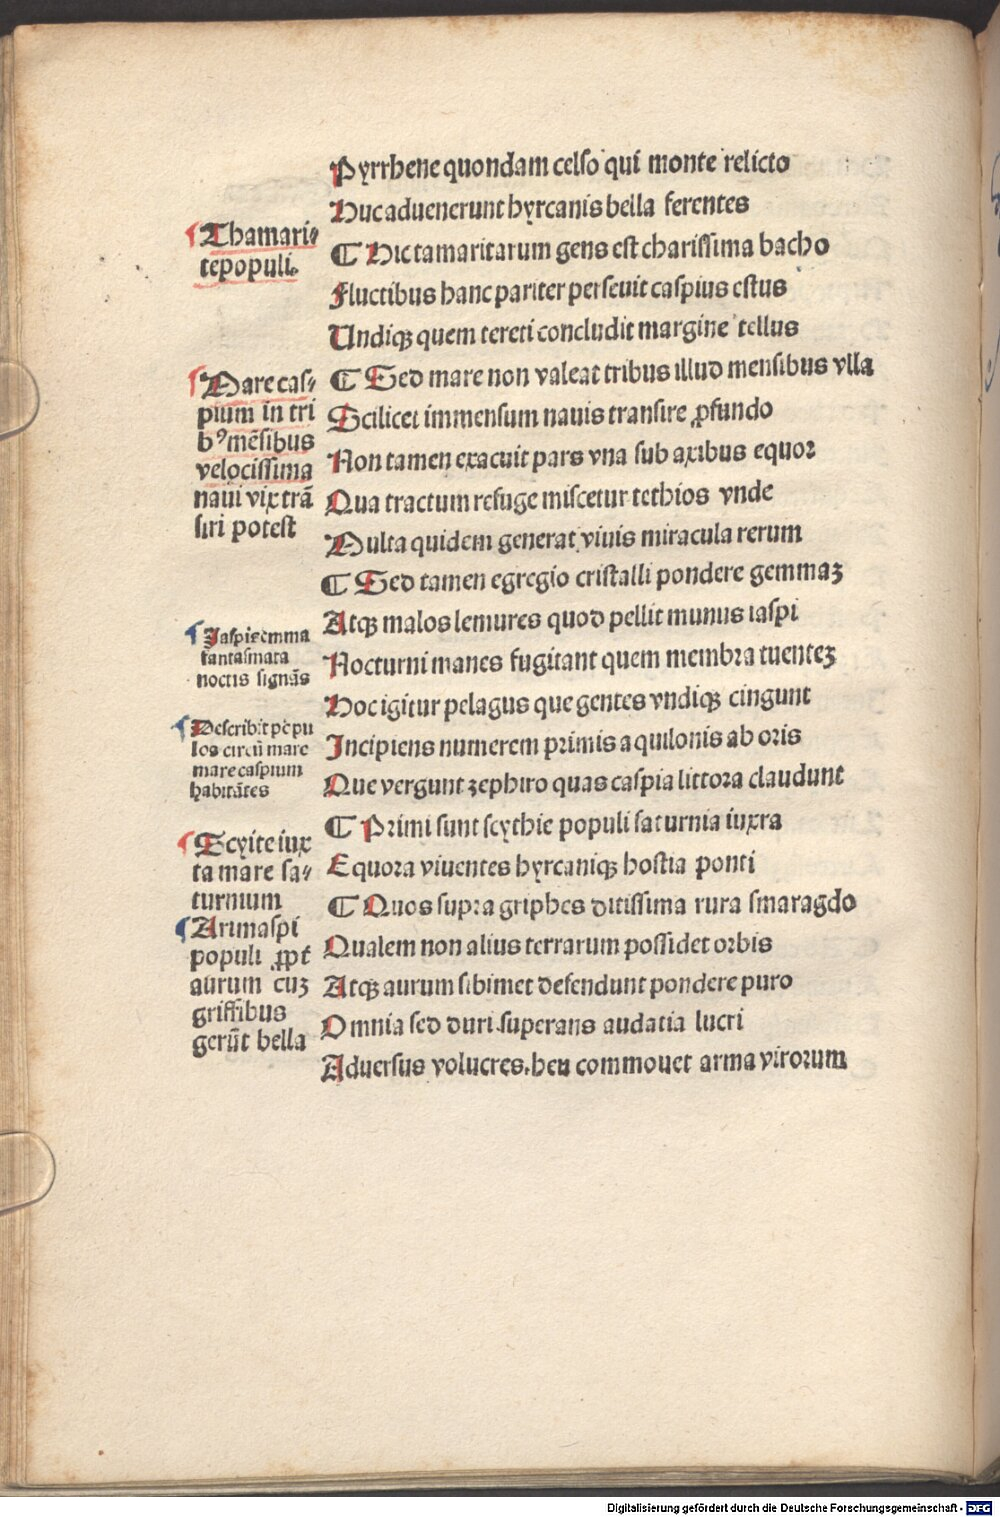 Pyrrhene quondam celso qui monte relicto
Huc aduenerunt hyrcanis bella ferentes
¶ Hic tamaritarum gens est charissima bacho
Fluctibus hanc pariter perseuit caspius estus
Undiqꝫ quem tereti concludit margine tellus
¶ Sed mare non valeat tribus illud mensibus vlla
Scilicet immensum nauis transire ꝓfundo
Non tamen exacuit pars vna sub axibus equor
Qua tractum refuge miscetur tethios vnde
Multa quidem generat viuis miracula rerum
¶ Sed tamen egregio cristalli pondere gemmaꝫ
Atqꝫ malos lemures quod pellit munus iaspi
Nocturni manes fugitant quem membra tuenteꝫ
Hoc igitur pelagus que gentes vndiqꝫ cingunt
Incipiens numerem primis aquilonis ab oris
Que vergunt zephiro quas caspia littora claudunt
¶ Primi sunt scythie populi saturnia iuxra
Equora viuentes hyrcaniqꝫ hostia ponti
¶ Quos supra griphes ditissima rura smaragdo
Qualem non alius terrarum possidet orbis
Atqꝫ aurum sibimet defendunt pondere puro
Omnia sed duri superans audatia lucri
Aduersus volucres.heu commouet arma virorum
¶ Thamari⸗
te populi.
¶ Mare cas⸗
pium in tri
bꝰ mēsibus
velocissima
naui vix trā
siri potest
¶ Iaspis emma
fantasmata
noctis signās
¶ Describit popu
los circū mare
mare caspium
habitātes
¶ Scyite iux
ta mare sa⸗
turnium
¶ Arimaspi
populi ꝓpt̄
aurum cuꝫ
griffibus
gerūt bella
Digitalisierung gefördert durch die Deutsche Forschungsgemeinschaft - DFG